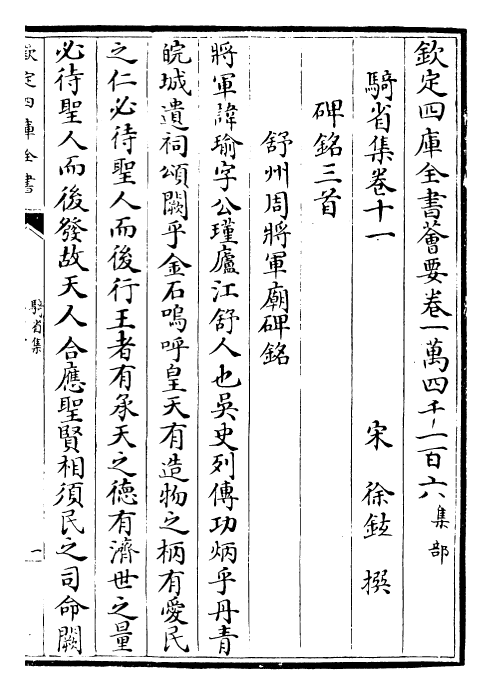 欽定四庫全書薈要卷一萬四千一百六 集部
騎省集卷十一
宋 徐鉉 撰
碑銘三首
舒州周將軍廟碑銘
將軍諱瑜字公瑾廬江舒人也吳史列傳功炳乎丹青
皖城遺祠頌闕乎金石嗚呼皇天有造物之柄有愛民
之仁必待聖人而後行王者有承天之德有濟世之量
必待聖人而後發故天人合應聖賢相須民之司命闕
欽定四庫全書
騎省集
一